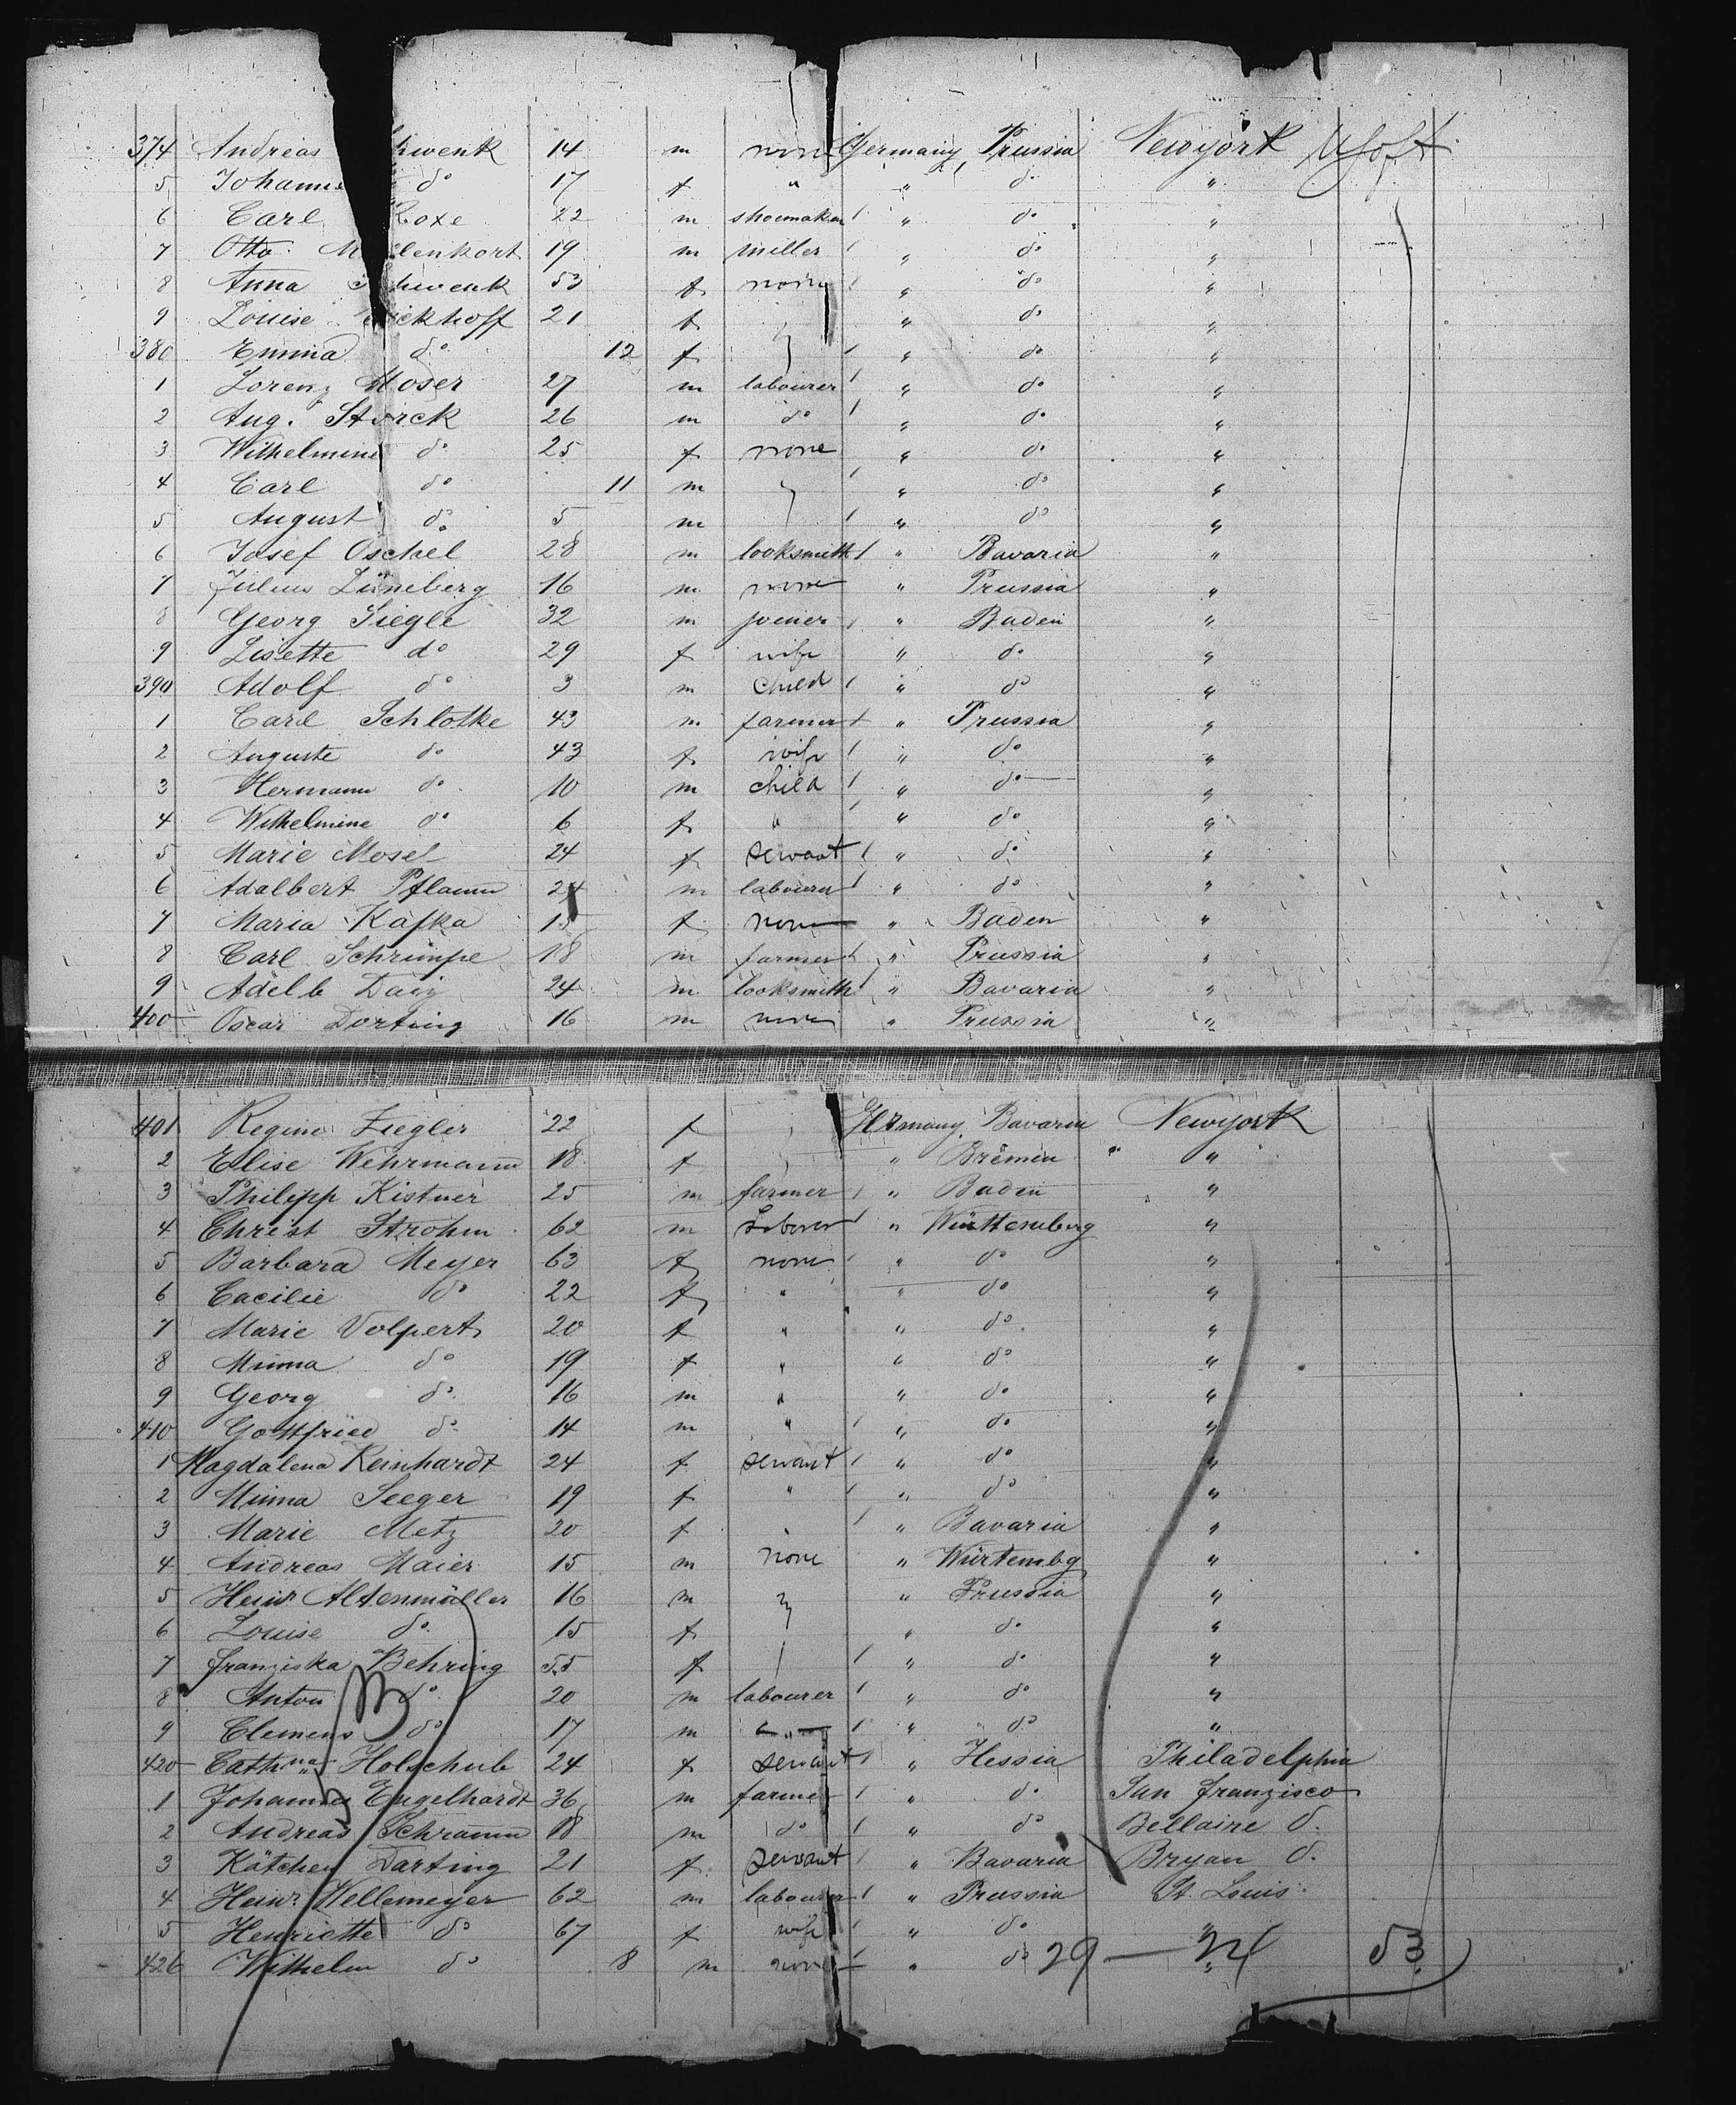 374 Andreas Schwenk 14 m none Germany Prussia Newyork U S of A.
5 Johanne do 17 f " " do "
6 Carl Loxe 22 m shoemaker " do "
7 Otto M lenkort 19 m miller " do "
8 Anna Schwenk 53 f none " do "
9 Louise ickhoff 21 f " do "
380 Emma do 12 f " do "
1 Lorenz Moser 27 m labourer " do "
2 Aug. Storck 26 m do " do "
3 Wilhelmine do 25 f none " do "
4 Carl do 11 m " do "
5 August do 5 m " do "
6 Josef Oschel 28 m looksmith " Bavaria "
7 Julius Lüneberg 16 m none " Prussia "
8 Georg Siegle 32 m joiner " Baden "
9 Lisette do 29 f wife " do "
390 Adolf do 3 m child " do "
1 Carl Schlotke 43 m farmer " Prussia "
2 Auguste do 43 f wife " do "
3 Hermann do 10 m child " do "
4 Wilhelmine do 6 f " " do "
5 Marie Mosel 24 f servant " do "
6 Adalbert Pflaum 24 m labourer " do "
7 Maria Kafka 15 f none " Baden "
8 Carl Schrimpe 18 m farmer " Prussia "
9 Adelb 24 m looksmith " Bavaria "
400 Oscar Dorting 16 m none " Prussia "
401 Regine Ziegler 22 f Germany Bavaria Newyork
2 Elise Wehrmann 18 f " Bremen "
3 Philipp Kistner 25 m farmer " Baden "
4 Christ Strohm 62 m Laborer " Württemberg "
5 Barbara Meyer 63 f none " do "
6 Cacilie do 22 f " " do "
7 Marie Volpert 20 f " " do "
8 Minna do 19 f " " do "
9 Georg do 16 m " " do "
410 Gottfried do 14 m " " do "
1 Magdalena Reinhardt 24 f servant " do "
2 Minna Seeger 19 f " " do "
3 Marie Metz 20 f " " Bavaria "
4 Andreas Maier 15 m none " Würtembg "
5 Heinr Altenmüller 16 m " Prussia "
6 Louise do 15 f " do "
7 Franziska Behring 55 f " do "
8 Anton do 20 m labourer " do "
9 Clemens do 17 m " " do "
420 Cathna Holschub 24 f servant " Hessia Philadelphia
1 Johannes Engelhardt 36 m farmer " do San Franzisco
2 Andreas Schramm 18 m do " do Bellaire O.
3 Kätchen Darting 21 f servant " Bavaria Bryan O.
4 Heinr. Wellemeyer 62 m labourer " Prussia St. Louis
5 Henriette do 67 f wife " do "
426 Wilhelm do 8 m none " do "
29 — 24 53